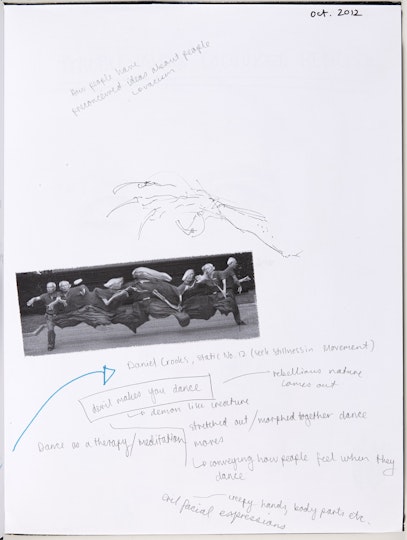 Oct. 2012
how people have
preconceived ideas about people
Daniel Crooks, Static No. 12 (seek stillness in Movement)
devil makes you dance
rebellious nature
comes out
↳ demon like creature
stretched out / morphed together dance
moves
Dance as a therapy / meditation
↳ conveying how people feel when they
dance
evil facial expressions
creepy hands, body parts etc.